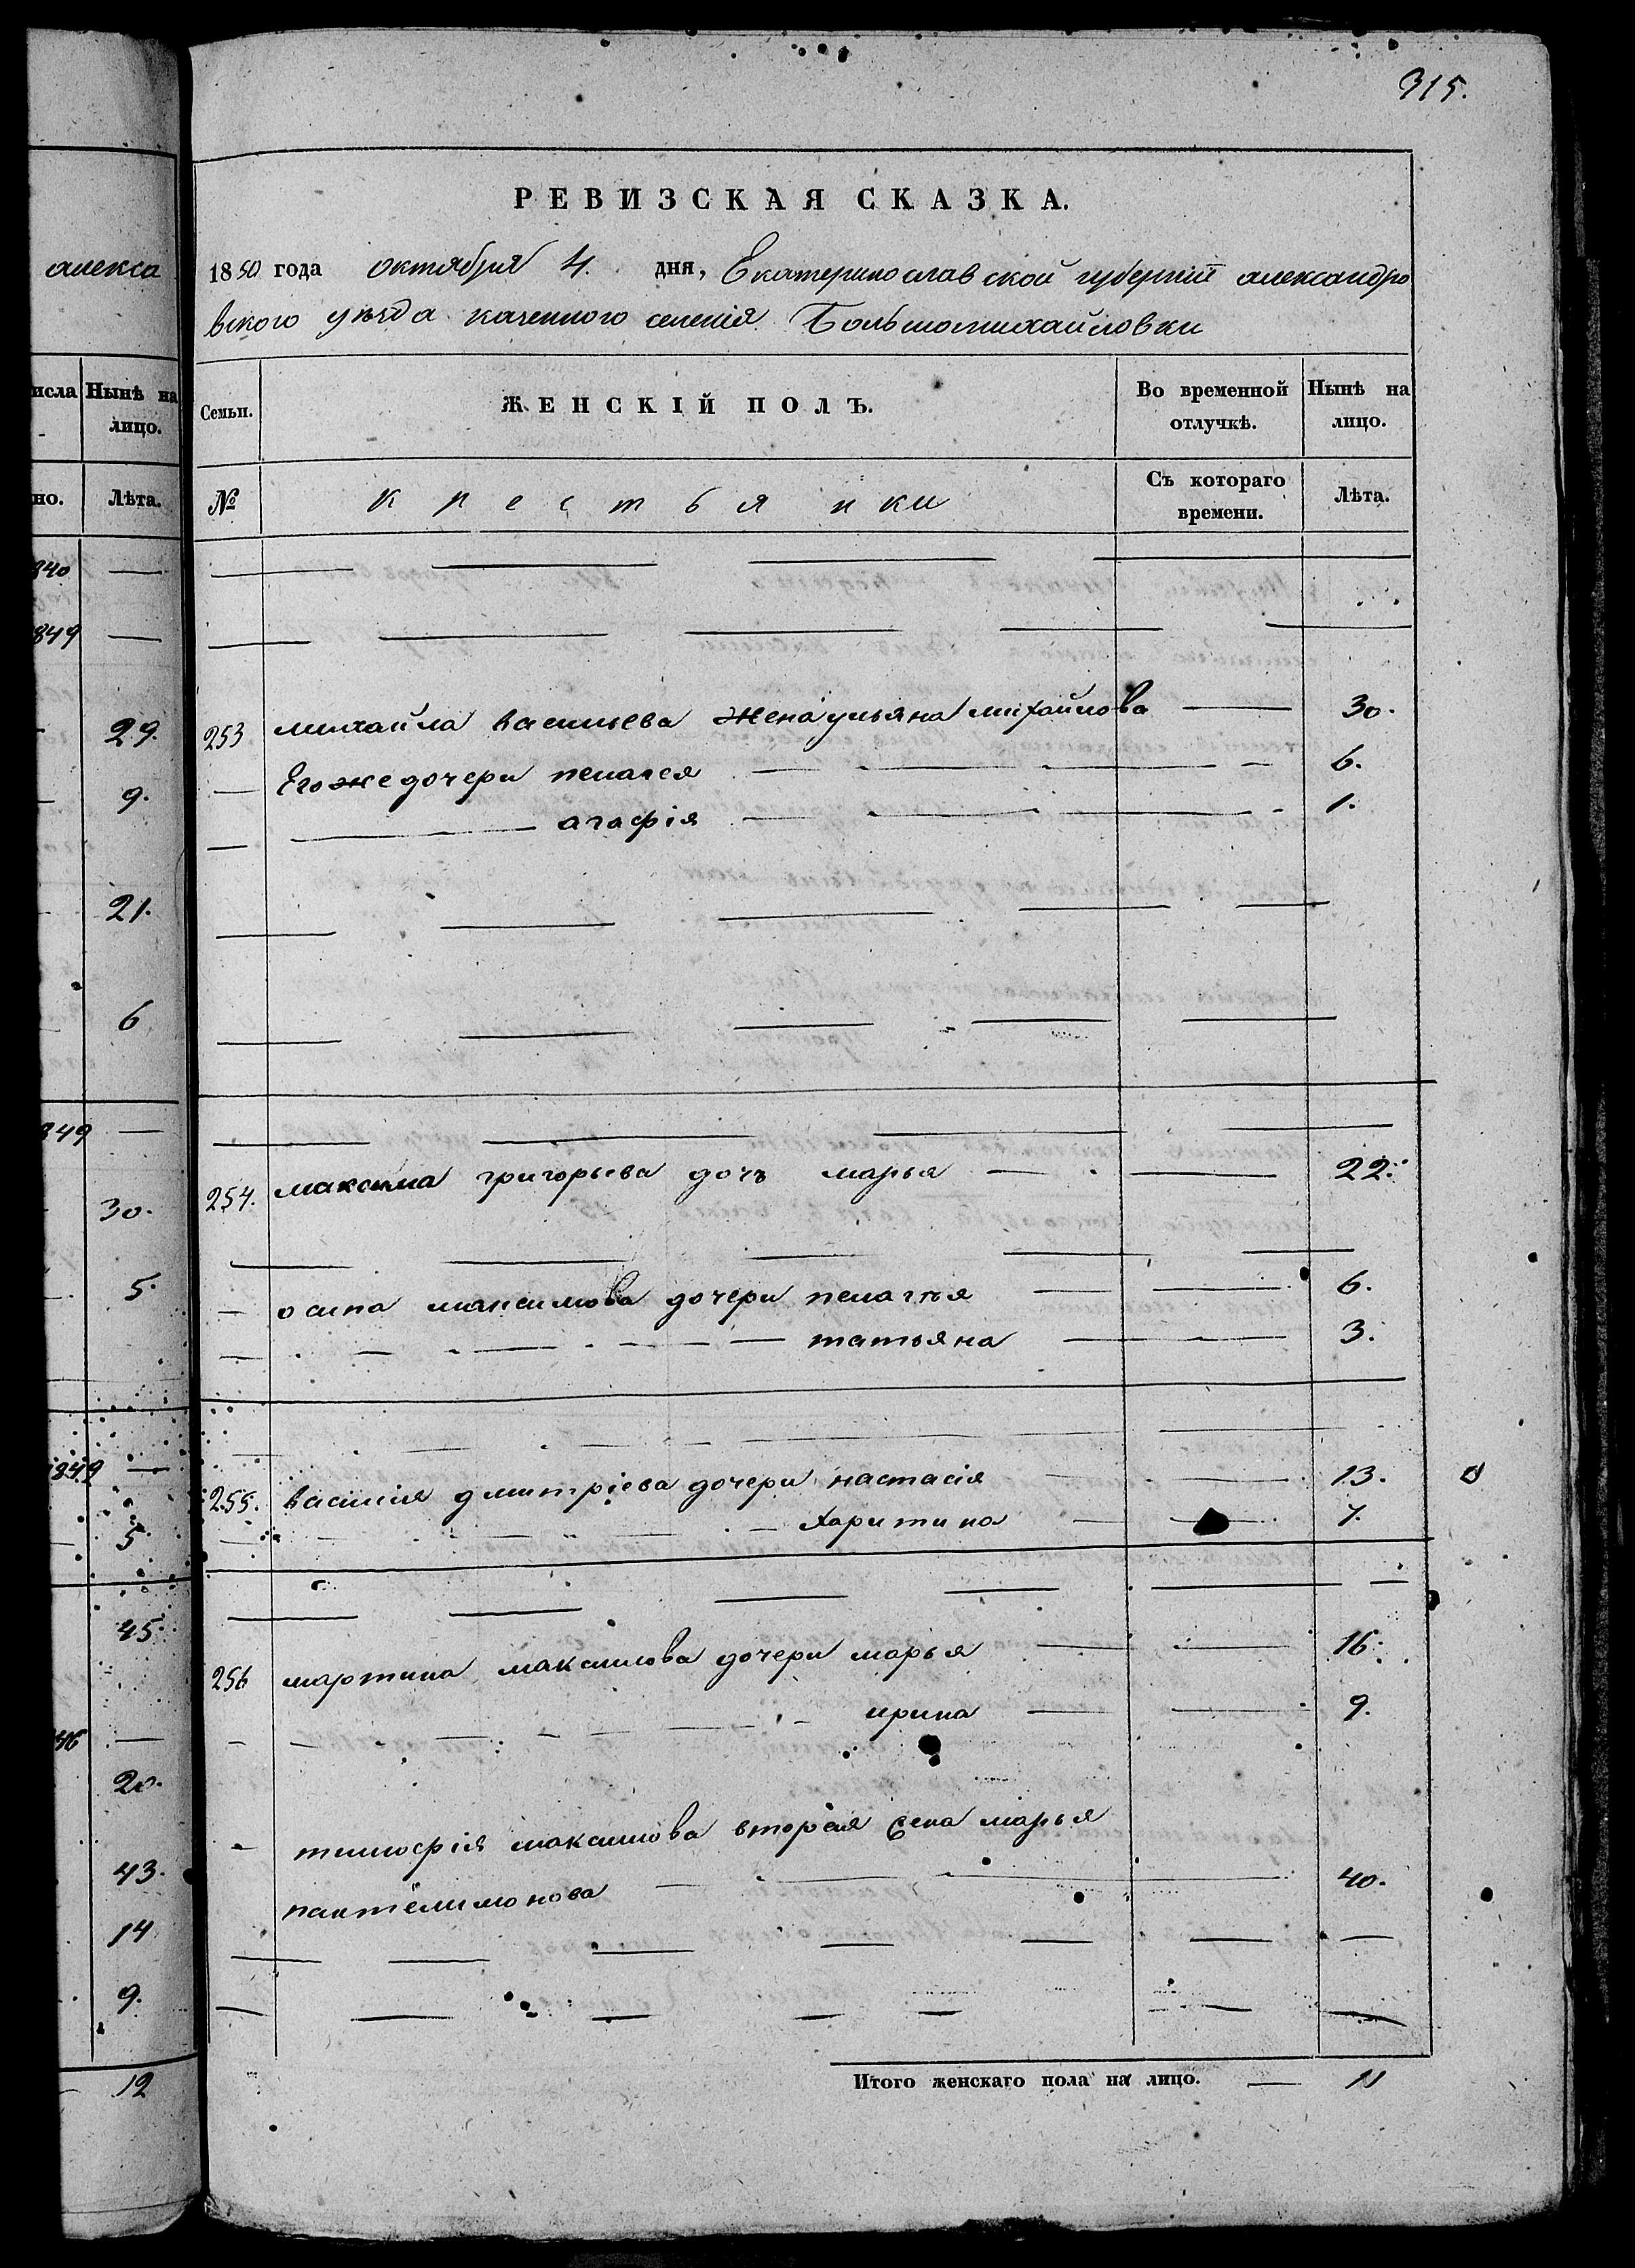 315.
алекса
РЕВИЗСКАЯ СКАЗКА.
1850 года октября 4. дня, Екатеринославской губернии александро
вского уезда казенного селения Большомихайловки
исла Нынѣ на лицо.
но. Лѣта.
Семьи. ЖЕНСКІЙ ПОЛЪ. Во временной отлучкѣ. Нынѣ на лицо.
№ крестьянки Съ котораго времени. Лѣта.
840
849
29.
9.
21.
6
849
30.
5.
1849
5
45
46
20.
43.
14
9.
12
253 михайла васильева жена ульяна михайлова 30.
Егоже дочери пелагея 6.
агафія 1.
254. максима григорьева дочь марья 22.
осипа максимова дочери пелагѣя 6.
татьяна 3.
255. василія дмитріева дочери настасія 13.
харитина 7.
256 мартина максимова дочери марья 16.
ирина 9.
тимофія максимова вторая жена марья
пантелимонова 40.
Итого женскаго пола на лицо. 11